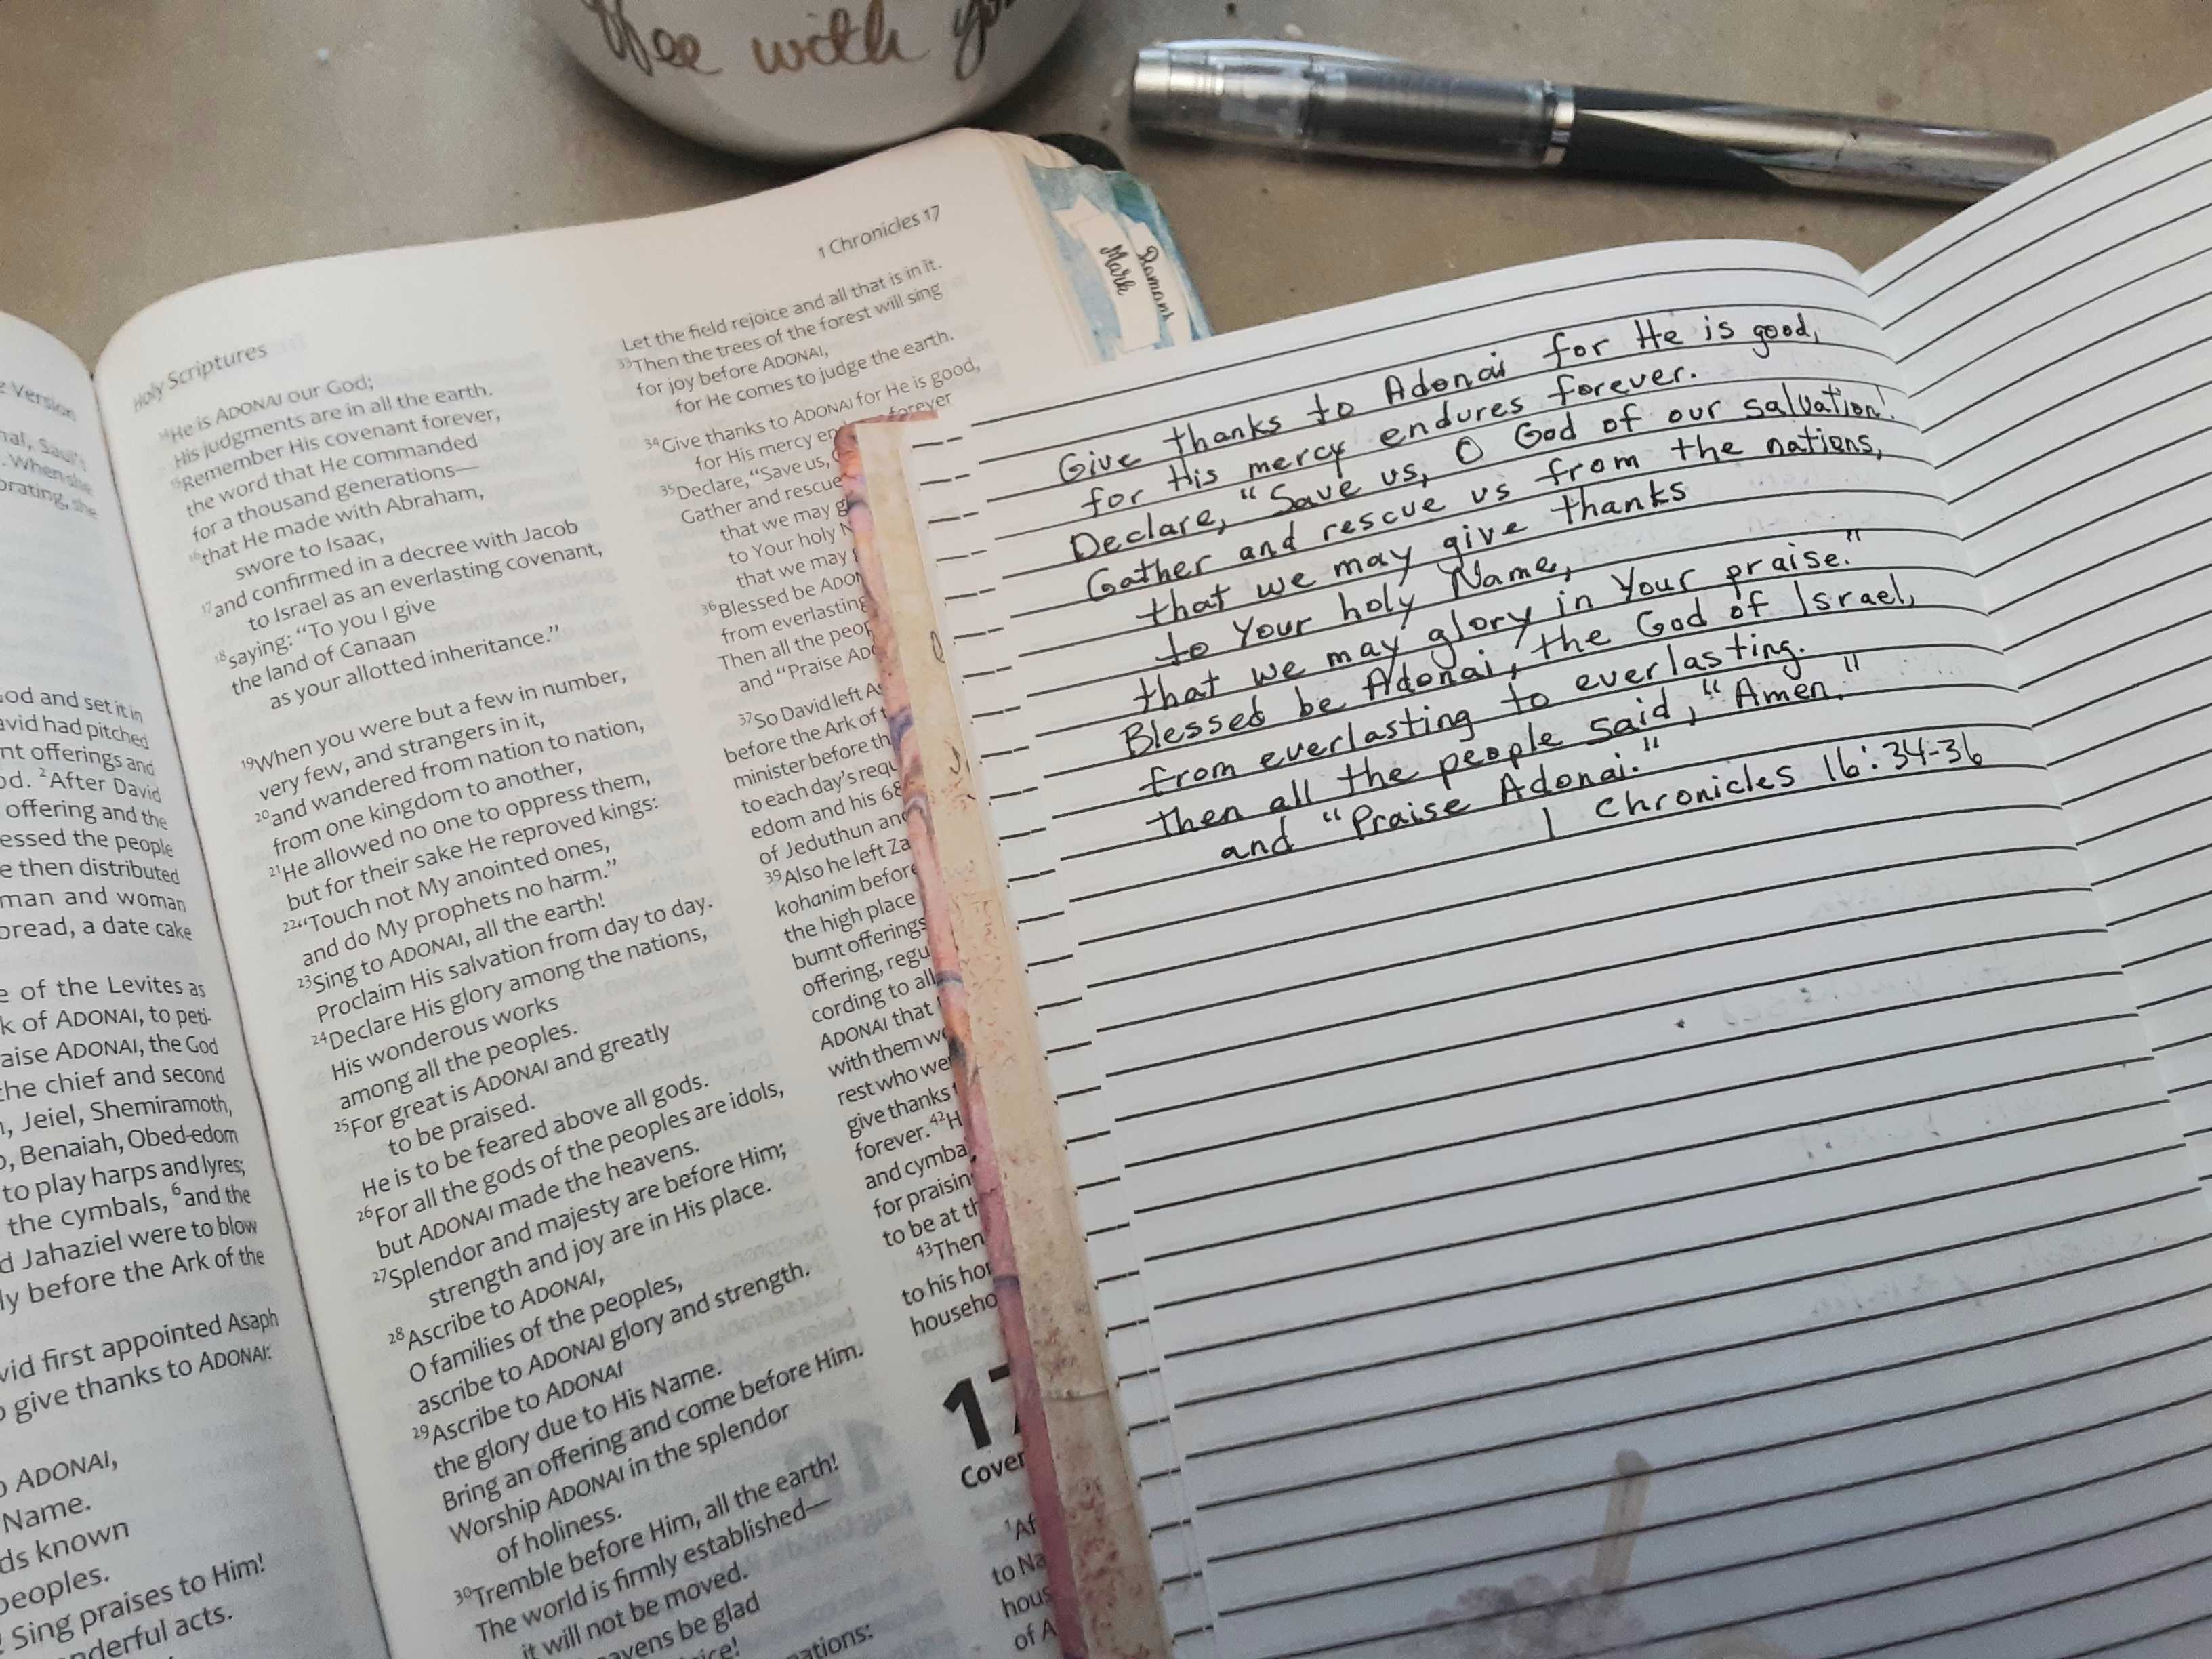 thee with
1 Chronicles 17
Mark
Romans
Version
Saul's
When she
she
God and set it in
had pitched
offerings and
²After David
offering and the
the people
then distributed
man and woman
bread, a date cake
of the Levites as
of ADONAI, to peti-
ADONAI, the God
the chief and second
Jeiel, Shemiramoth,
Benaiah, Obed-edom
to play harps and lyres;
the cymbals, ⁶and the
Jahaziel were to blow
before the Ark of the
first appointed Asaph
give thanks to ADONAI:
ADONAI,
Name.
known
peoples.
Sing praises to Him!
acts.
Holy Scriptures
¹⁴He is ADONAI our God;
His judgments are in all the earth.
¹⁵Remember His covenant forever,
the word that He commanded
for a thousand generations—
¹⁶that He made with Abraham,
swore to Isaac,
¹⁷and confirmed in a decree with Jacob
to Israel as an everlasting covenant,
¹⁸saying: “To you I give
the land of Canaan
as your allotted inheritance.”
¹⁹When you were but a few in number,
very few, and strangers in it,
²⁰and wandered from nation to nation,
from one kingdom to another,
²¹He allowed no one to oppress them,
but for their sake He reproved kings:
²²“Touch not My anointed ones,
and do My prophets no harm.”
²³Sing to ADONAI, all the earth!
Proclaim His salvation from day to day.
²⁴Declare His glory among the nations,
His wonderous works
among all the peoples.
²⁵For great is ADONAI and greatly
to be praised.
He is to be feared above all gods.
²⁶For all the gods of the peoples are idols,
but ADONAI made the heavens.
²⁷Splendor and majesty are before Him;
strength and joy are in His place.
²⁸Ascribe to ADONAI,
O families of the peoples,
ascribe to ADONAI glory and strength.
²⁹Ascribe to ADONAI
the glory due to His Name.
Bring an offering and come before Him.
Worship ADONAI in the splendor
of holiness.
³⁰Tremble before Him, all the earth!
The world is firmly established—
it will not be moved.
be glad
Let the field rejoice and all that is in it.
³³Then the trees of the forest will sing
for joy before ADONAI,
for He comes to judge the earth.
³⁴Give thanks to ADONAI for He is good,
for His mercy forever
³⁵Declare, “Save us,
Gather and rescue
that we may
to Your holy
that we may
³⁶Blessed be
from everlasting
Then all the
and “Praise
³⁷So David left
before the Ark of
minister before
to each day's
edom and his
of Jeduthun
³⁹Also he left
kohanim before
the high place
burnt offerings
offering,
cording to all
ADONAI that
with them
rest who
give thanks
forever. ⁴²
and
for
to be at
⁴³Then
to his
17
¹
to
of
Give thanks to Adonai for He is good,
for His mercy endures forever.
Declare, “Save us, O God of our salvation!
Gather and rescue us from the nations,
that we may give thanks
to Your holy Name,
that we may glory in Your praise.”
Blessed be Adonai, the God of Israel,
from everlasting to everlasting.
Then all the people said, “Amen.”
and “Praise Adonai.”
1 Chronicles 16:34-36